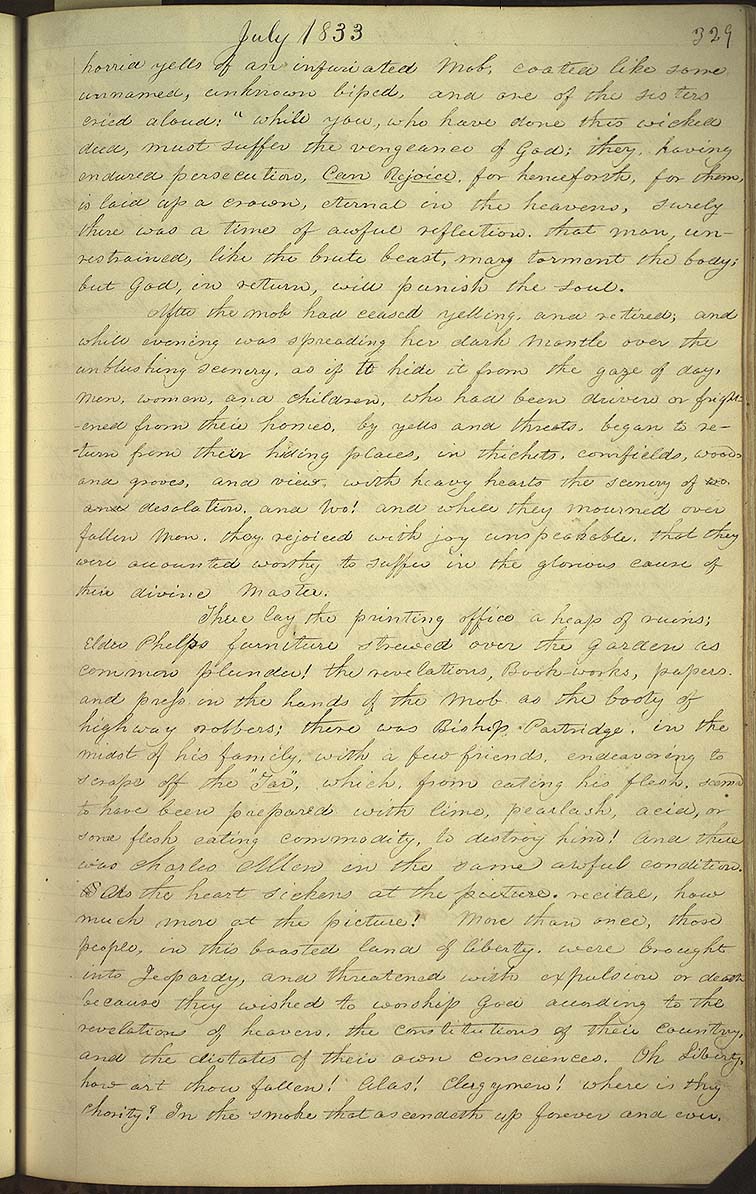 July 1833 329
horrid yells of an infuriated mob, coated like some
unnamed, unknown biped, and one of the sisters
cried aloud: "while you, who have done this wicked
deed, must suffer the vengeance of God; they, having
endured persecution, can Rejoice, for henceforth, for them,
is laid up a crown, eternal in the heavens, surely
there was a time of awful reflection. that man, un-
restrained, like the brute beast, may torment the body;
but God, in return, will punish the soul.
After the mob had ceased yelling, and retired; and
while evening was spreading her dark mantle over the
unblushing scenery, as if to hide it from the gaze of day,
men, women, and children, who had been driven or fright-
-ened from their homes, by yells and threats, began to re-
-turn from their hiding places, in thickets, cornfields, woods
and groves, and view, with heavy hearts the scenery of wo.
and desolation. and Wo! and while they mourned over
fallen Man. they rejoiced with joy unspeakable. that they
were accounted worthy to suffer in the glorious cause of
their divine Master.
There lay the printing office a heap of ruins;
Elder Phelps furniture strewed over the garden as
common plunder! the revelations, Book-works, papers.
and press in the hands of the mob as the booty of
highway robbers; there was Bishop Partridge. in the
midst of his family, with a few friends, endeavoring to
scrape off the "Tar", which, from eating his flesh, seemed
to have been prepared with lime, pearlash, acid, or
some flesh eating commodity, to destroy him! And there
was Charles Allen in the same awful condition.
As the heart sickens at the picture. recital, how
much more at the picture! More than once, those
people, in this boasted land of liberty. were brought
into Jeopardy, and threatened with expulsion or death
because they wished to worship God according to the
revelations of heaven, the constitutions of their country,
and the dictates of their own consciences. Oh Liberty,
how art thou fallen! Alas! Clergymen! where is thy
charity? In the smoke that ascendeth up forever and ever.